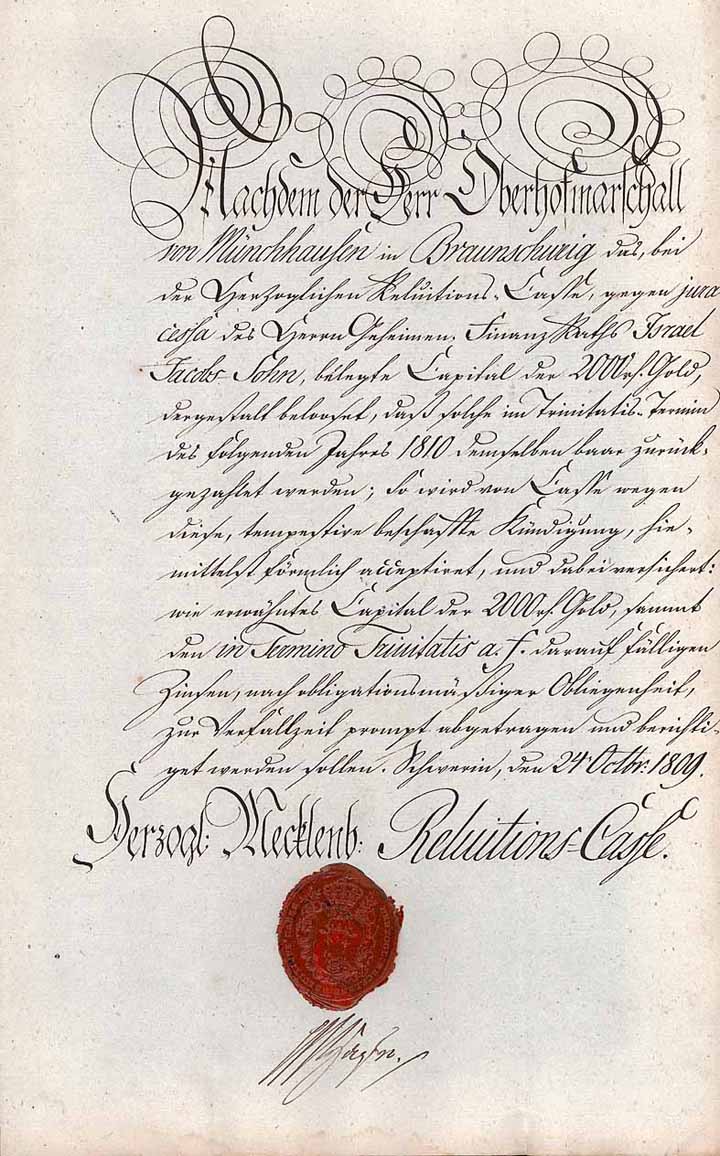 Nachdem der Herr Oberhofmarschall
von Münchhausen in Braunschweig das, bei
der Herzoglichen Reluitions-Casse, gegen jura
cessa des Herrn Geheimen-Finanz Raths Israel
Jacobs-Sohn, belegte Capital der 2000 rf. Gold,
dergestalt belooset, daß solche im Trinitatis-Termin
des folgenden Jahres 1810 demselben baar zurück-
gezahlet werden; So wird von Casse wegen
diese, tempestive beschaffte Kündigung, hie-
mittelst förmlich acceptiret, und dabei versichert:
wie erwähntes Capital der 2000 rf. Gold, sammt
den in Termino Trinitatis a. f. darauf fälligen
Zinsen, nach obligationsmäßiger Obliegenheit,
zur Verfallzeit prompt abgetragen und berichti-
get werden sollen. Schwerin, den 24 Octbr. 1809.
Herzogl: Mecklenb: Reluitions-Casse.